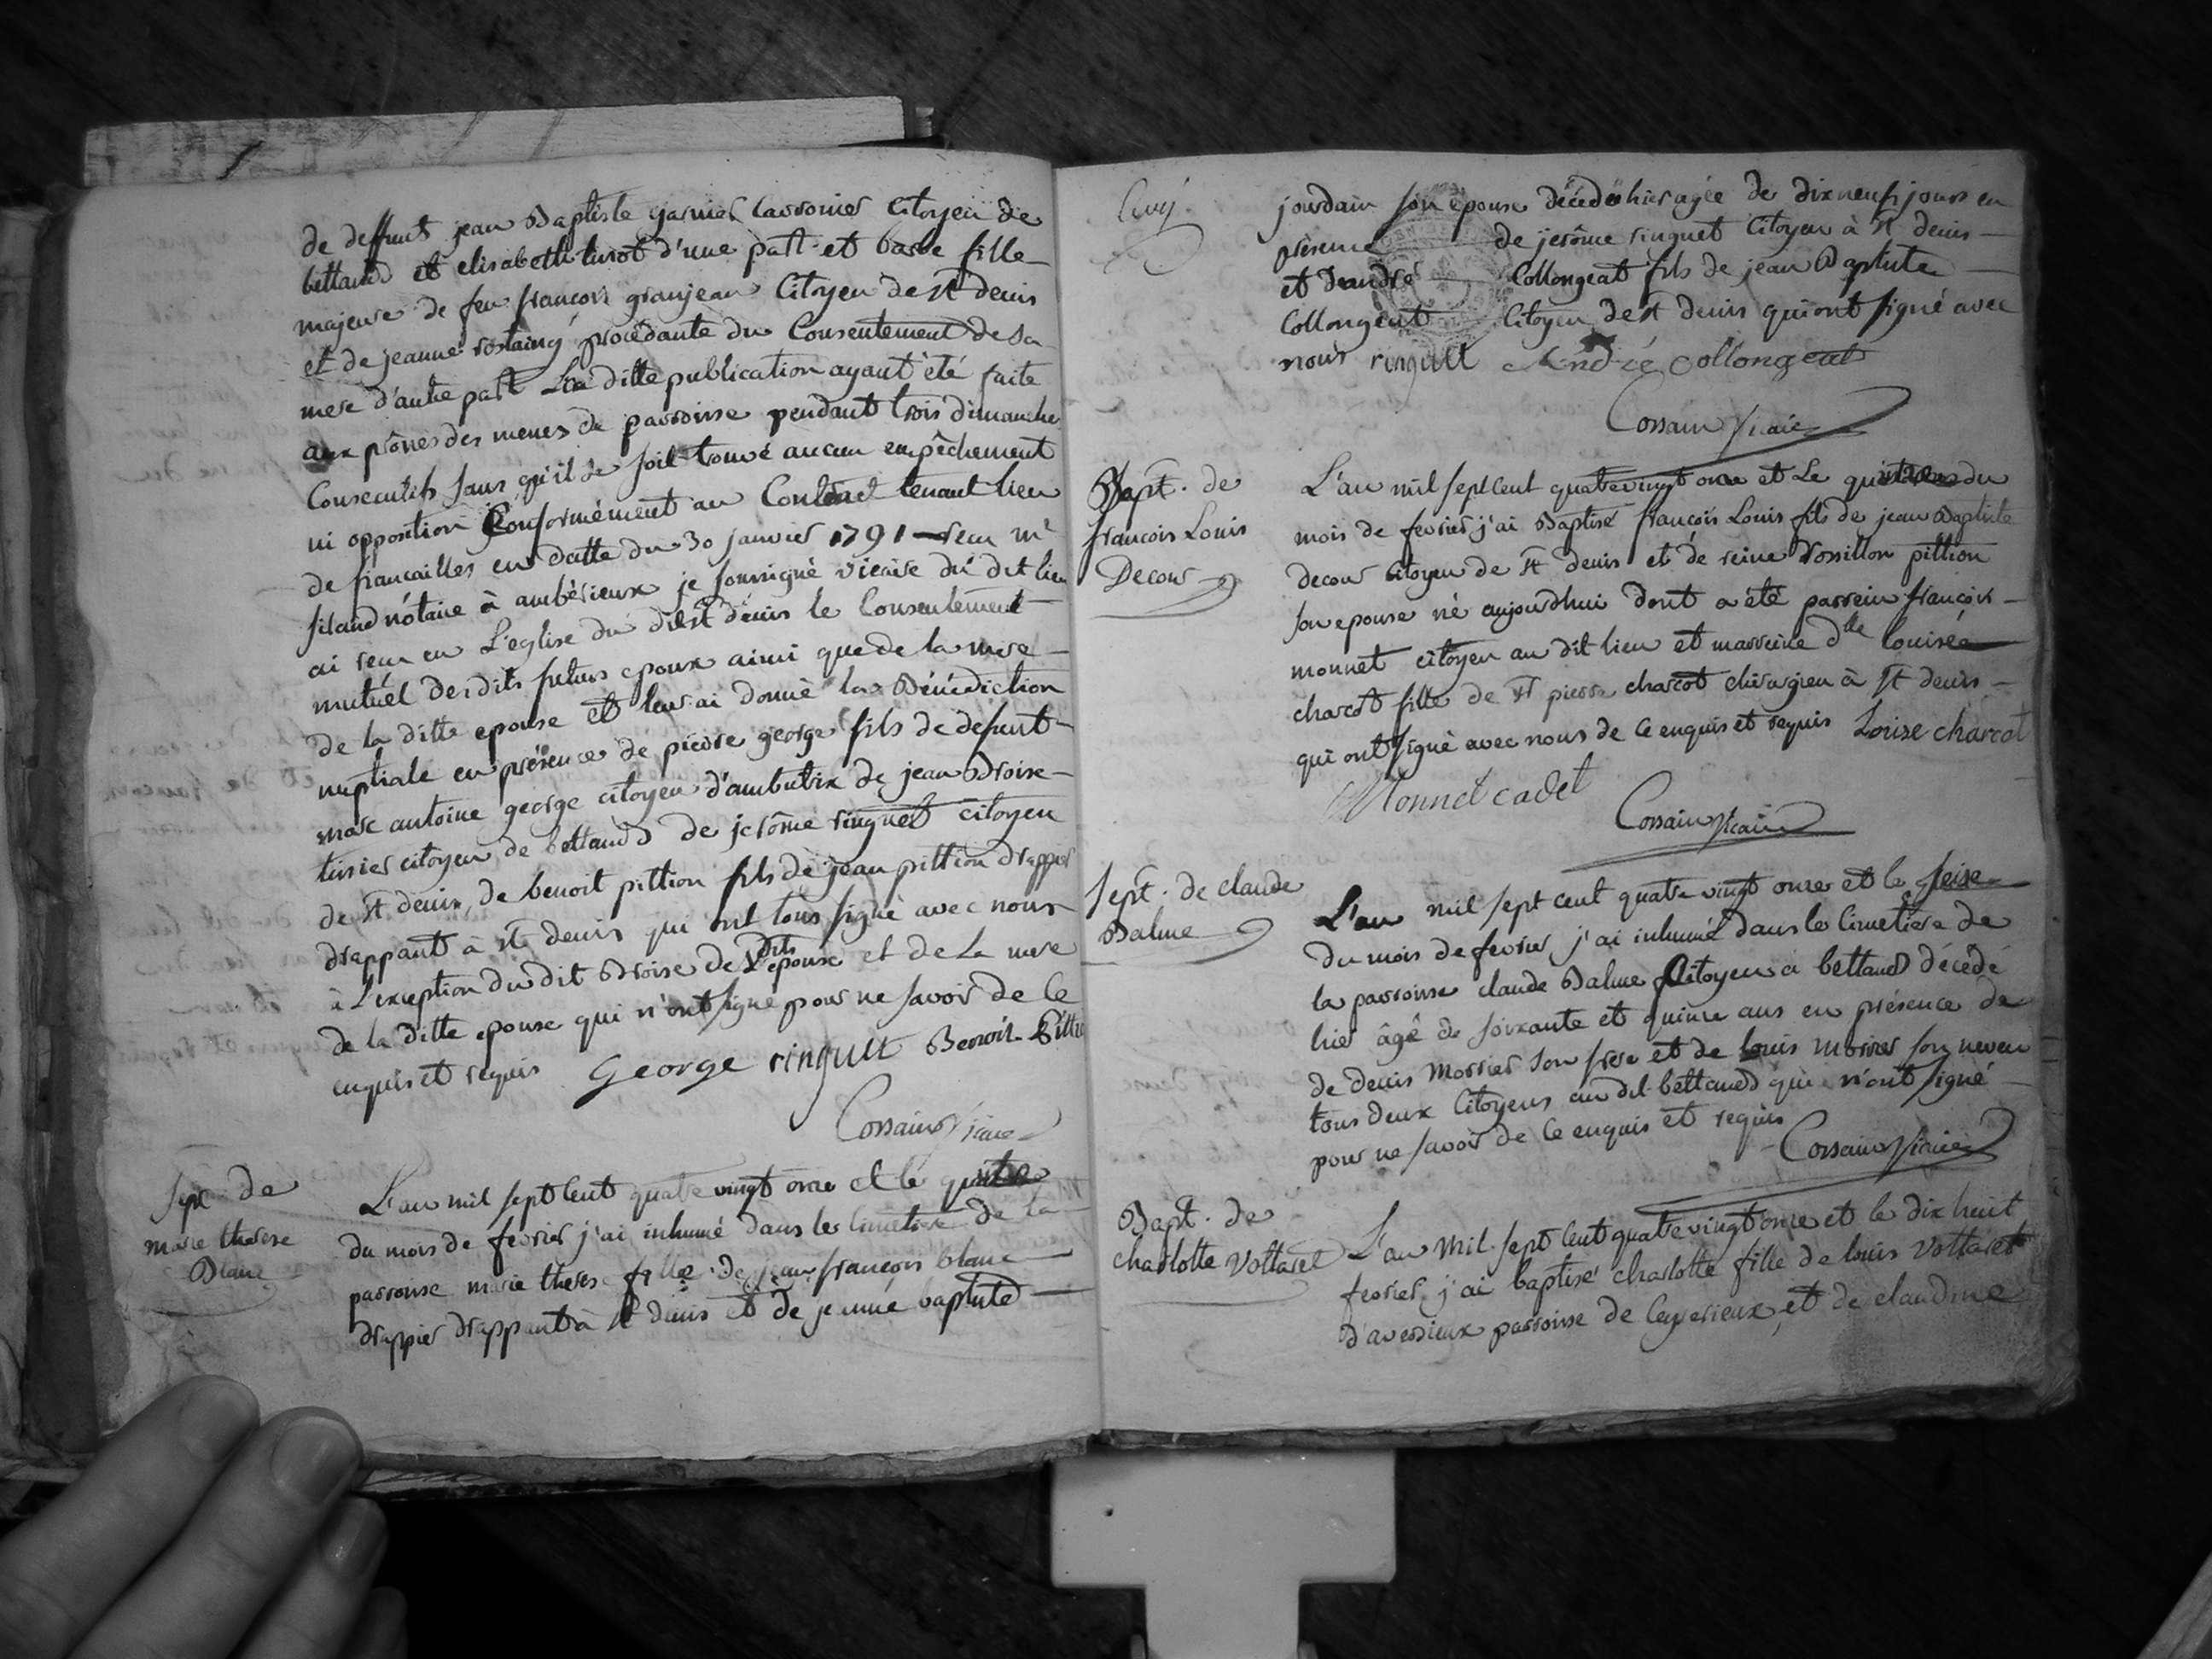 de deffunt jean Baptiste garnier Carronier Citoyen de
bettand et elisabeth turot d'une part et barbe fille
majeure de feu françois granjean Citoyen de St denis
et de jeanne rostaing procédante du Consentement de sa
mere d'autre part La ditte publication ayant été faite
aux prônes des messes de parroisse pendant trois dimanche
Consecutifs sans qu'il se soit trouvé aucun empêchement
ni opposition Conformément au Contrat tenant lieu
de fiancailles en datte du 30 janvier 1791 reçu me
siland nótaire à ambérieux je soussigné vicaire du dit lieu
ai reçu en L'eglise du dit St denis le Consentement
mutuel desdits futurs epoux ainsi que de la mere
de la ditte epouse et leur ai donné la Bénédiction
nuptiale en présence de pierre george fils de defunt
marc antoine george citoyen d'ambutrix de jean Broise
tissier citoyen de bettand de jerôme ringuet citoyen
de St denis, de benoit pittion fils de jean pittion drappier
drappant à St denis qui ont tous signé avec nous
à L'exception du dit Broise de L'dits epoux et de La mere
de la ditte epouse qui n'ont signé pour ne savoir de Ce
enquis et requis George ringuet Benoit Pittion
Cossain Vicaire
Sept de
marie therese
Blanc
L'an mil sept Cent quatre vingt onze et le quinze
du mois de fevrier j'ai inhumé dans le Cimetiere de la
parroisse marie therese fille de jean françois blanc
drappier drappant à St denis et de jeanne baptiste
jourdain son epouse décédée hier agée de dix neuf jours en
présence de jerôme ringuet Citoyen à St denis
et d'andré Collongeat fils de jean Baptiste
Collongeat Citoyen de St denis qui ont signé avec
nous ringuet André Collongeat
Cossain Vicaire
Bapt. de
françois Louis
Decour
L'an mil sept Cent quatrevingt onze et Le quinze du
mois de fevrier j'ai Baptisé françois Louis fils de jean Baptiste
decour Citoyen de St denis et de reine rossillon pittion
son epouse né aujourdhui dont a été parrein françois
monnet citoyen au dit lieu et marreine dlle louise
charcot fille de Sr pierre charcot chirurgien à St denis
qui ont signé avec nous de Ce enquis et requis Louise charcot
Monnet cadet
Cossain Vicaire
Sept. de claude
Balme
L'an mil sept cent quatre vingt onze et le seize
du mois de fevrier j'ai inhumé dans le Cimetiere de
la parroisse claude Balme Citoyen à bettand décédé
hier âgé de soixante et quinze ans en présence de
de denis Morrier son frere et de louis morrier son neveu
tous deux Citoyens au dit bettand qui n'ont signé
pour ne savoir de Ce enquis et requis
Cossain Vicaire
Bapt. de
charlotte Vollaret
L'an mil sept Cent quatrevingt onze et le dix huit
fevrier j'ai baptisé charlotte fille de louis Vollaret
d'averdieux parroisse de Ceyzerieux et de claudine